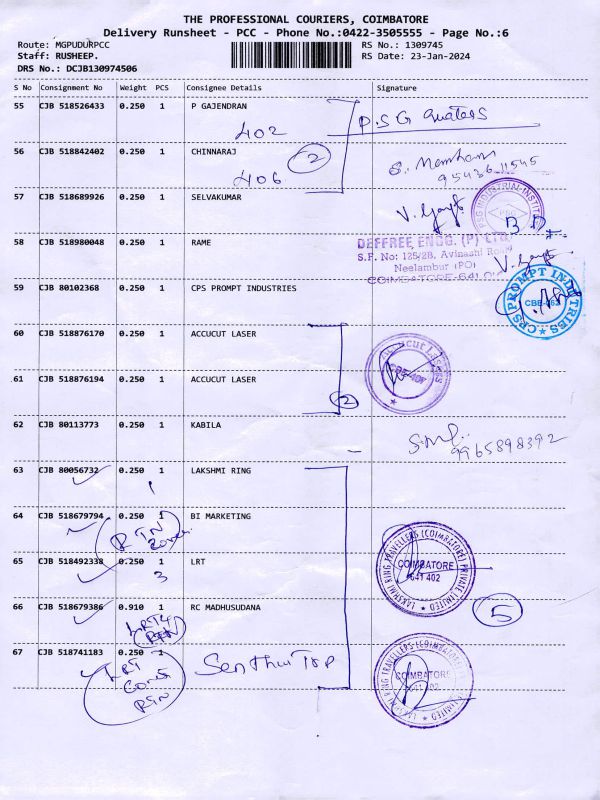 THE PROFESSIONAL COURIERS, COIMBATORE
Delivery Runsheet - PCC - Phone No.:0422-3505555 - Page No.:6
Route: MGPUDURPCC
RS No.: 1309745
Staff: RUSHEEP.
RS Date: 23-Jan-2024
DRS No.: DCJB130974506
S No Consignment No Weight PCS Consignee Details Signature
55 CJB 518526433 0.250 1 P GAJENDRAN
402
P.S.G Quaters
56 CJB 518842402 0.250 1 CHINNARAJ
2
406
57 CJB 518689926 0.250 1 SELVAKUMAR
PSG INDUSTRIAL INSTITUTE
58 CJB 518980048 0.250 1 RAME
DEFFREE ENGG. (P) LTD
S.F. No: 125/2B, Avinashi Road
Neelambur (PO)
COIMBATORE-641
59 CJB 80102368 0.250 1 CPS PROMPT INDUSTRIES
CPS PROMPT INDUSTRIES
60 CJB 518876170 0.250 1 ACCUCUT LASER
61 CJB 518876194 0.250 1 ACCUCUT LASER
2
62 CJB 80113773 0.250 1 KABILA
9965898392
63 CJB 80056732 0.250 1 LAKSHMI RING
1
64 CJB 518679794 0.250 1 BI MARKETING
65 CJB 518492338 0.250 1 LRT
3
LAKSHMI RING TRAVELLERS (COIMBATORE) PRIVATE LIMITED
COIMBATORE
641 402
66 CJB 518679386 0.910 1 RC MADHUSUDANA
5
67 CJB 518741183 0.250 1
LRT
Cons
RTN
LAKSHMI RING TRAVELLERS (COIMBATORE) PRIVATE LIMITED
COIMBATORE
641 402